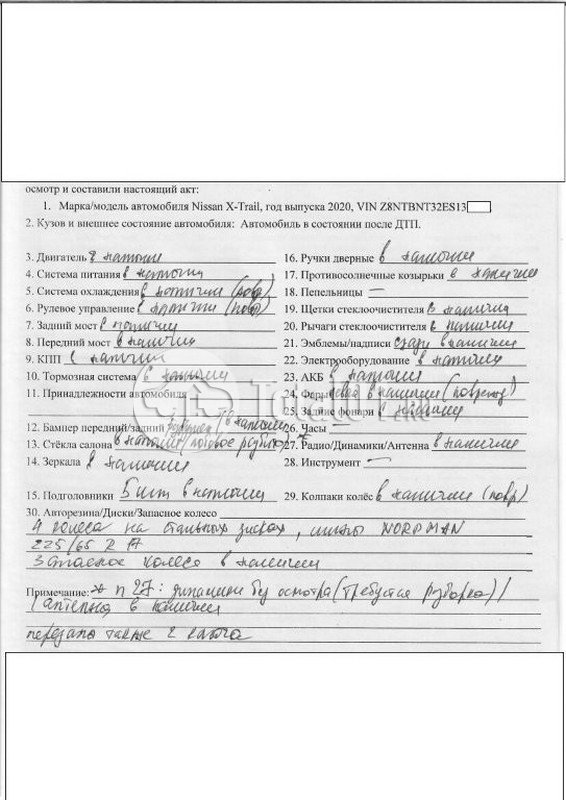 осмотр и составили настоящий акт:
1. Марка/модель автомобиля Nissan X-Trail, год выпуска 2020, VIN Z8NTBNT32ES13
2. Кузов и внешнее состояние автомобиля: Автомобиль в состоянии после ДТП.
3. Двигатель в наличии
4. Система питания в наличии
5. Система охлаждения в наличии (повр)
6. Рулевое управление в наличии (повр)
7. Задний мост в наличии
8. Передний мост в наличии
9. КПП в наличии
10. Тормозная система в наличии
11. Принадлежности автомобиля
12. Бампер передний/задний в наличии
13. Стёкла салона в наличии, лобовое
14. Зеркала в наличии
15. Подголовники 5 шт в наличии
16. Ручки дверные в наличии
17. Противосолнечные козырьки в наличии
18. Пепельницы —
19. Щетки стеклоочистителя в наличии
20. Рычаги стеклоочистителя в наличии
21. Эмблемы/надписи сзади в наличии
22. Электрооборудование в наличии
23. АКБ в наличии
24. Фары в наличии
25. Задние фонари в наличии
26. Часы —
27. Радио/Динамики/Антенна в наличии
28. Инструмент —
29. Колпаки колёс в наличии (повр)
30. Авторезина/Диски/Запасное колесо
4 колеса на стальных дисках, шины NORDMAN
225/65 R 17
Запасное колесо в наличии
Примечание: * п 27: динамики без осмотра (требуется разборка)
(антенна в наличии
переданы также 2 ключа